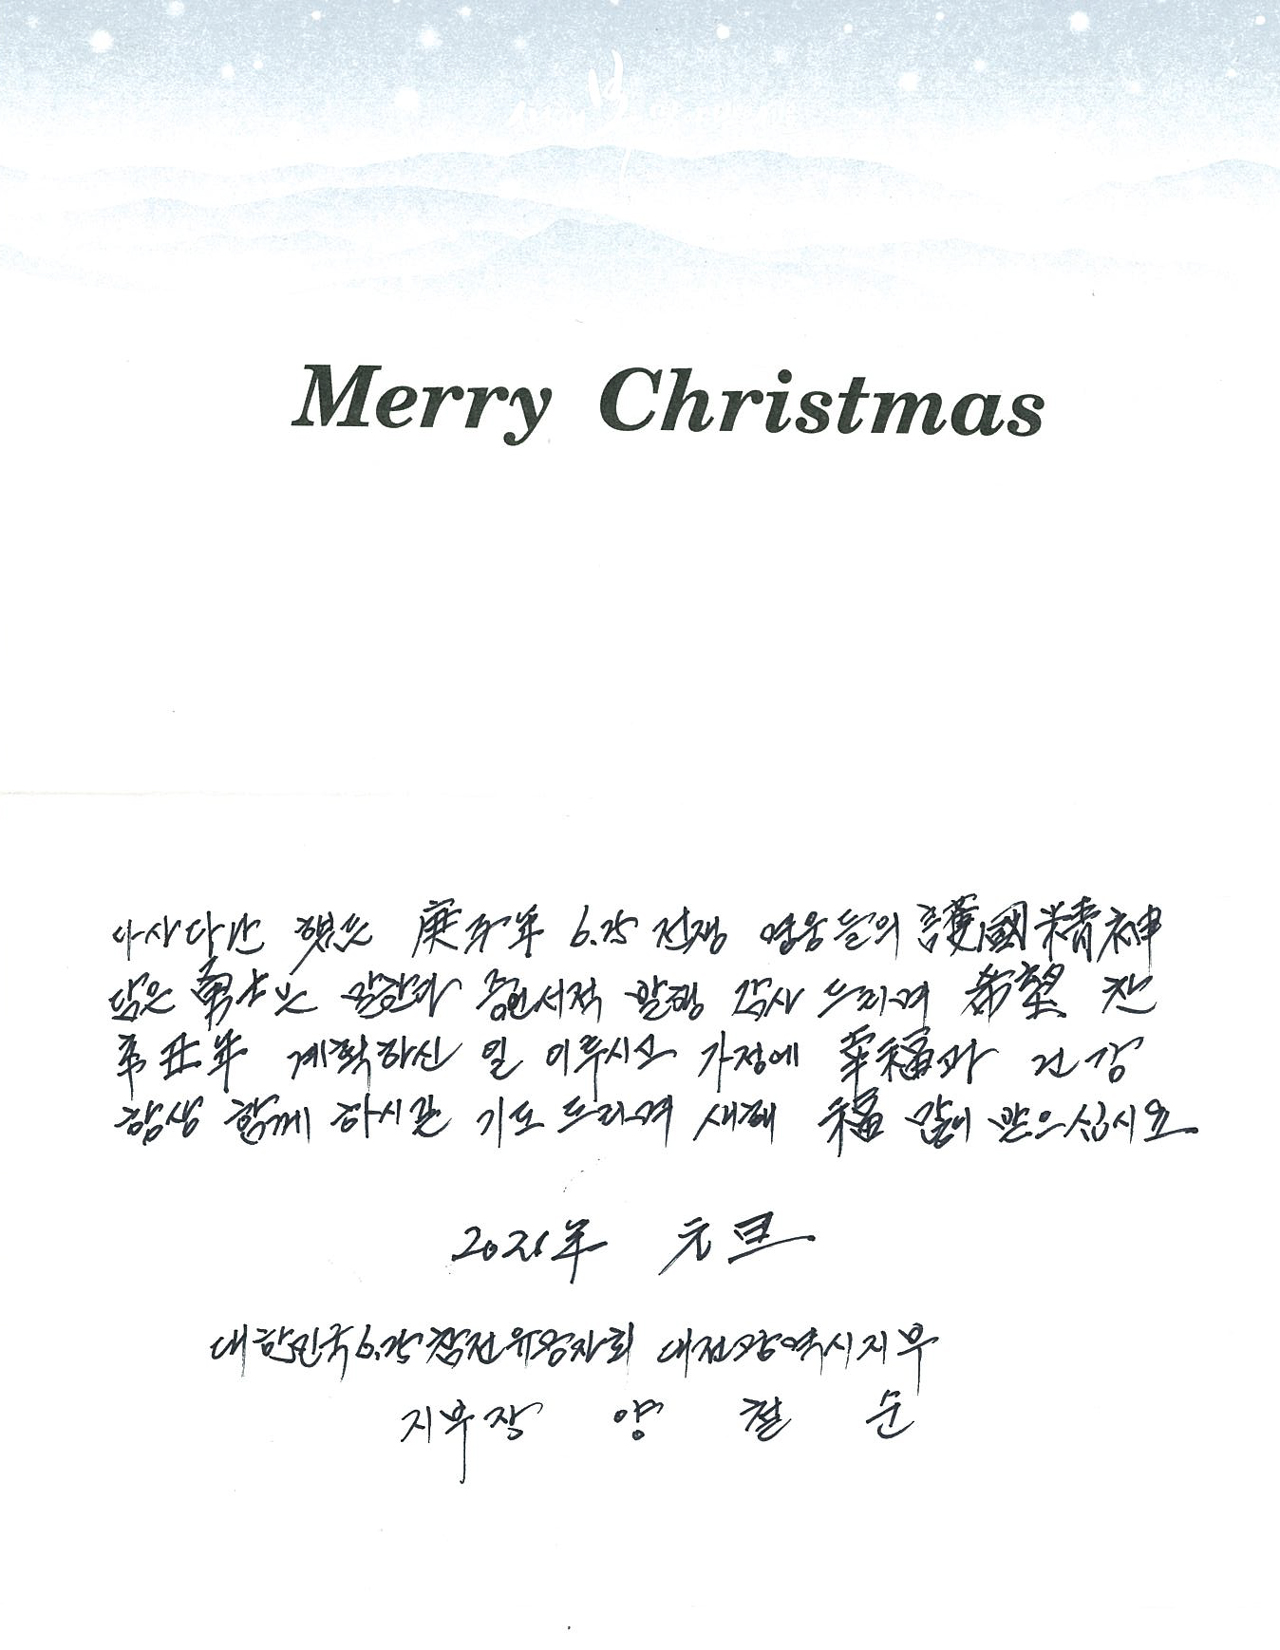 Merry Christmas
다사다난 했든 庚子年 6.25 전쟁 영웅들의 護國精神
담은 勇士는 말한다 증언서적 발행 감사 드리며 希望 찬
辛丑年 계획하신 일 이루시소 가정에 幸福과 건강
항상 함께 하시길 기도 드리며 새해 福 많이 받으십시요.
2021年 元旦.
대한민국6.25참전유공자회 대전광역시지부
지부장 양 철 순